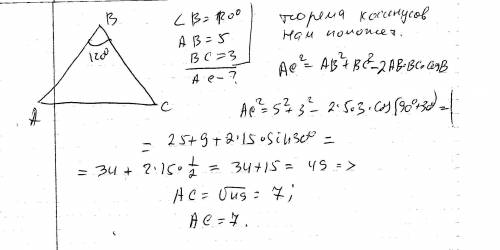 B
120°
A
C
∠B = 120°
AB = 5
BC = 3
AC - ?
теорема косинусов
нам поможет.
AC² = AB² + BC² - 2AB·BC·cosB
AC² = 5² + 3² - 2·5·3·cos(90°+30°) =
= 25 + 9 + 2·15·sin30° =
= 34 + 2·15·1/2 = 34 + 15 = 49 =>
AC = √49 = 7;
AC = 7.